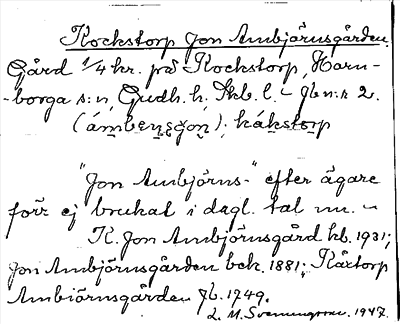 Kockstorp Jon Ambjörnsgården.
Gård 1/4 kr. på Kockstorp, Horn-
-borga s:n, Gudh. h. Skb. l. – Jb n:r 2.
(ámbenẹgọn); kákstọrp
"Jon Ambjörns-" efter ägare
förr ej brukat i dagl. tal nu. –
K. Jon Ambjörnsgård kb. 1931;
Jon Ambjörnsgården bek. 1881; Kåxtorp
Ambiörnsgården Jb. 1749.
L. M. Svenungsson. 1947.